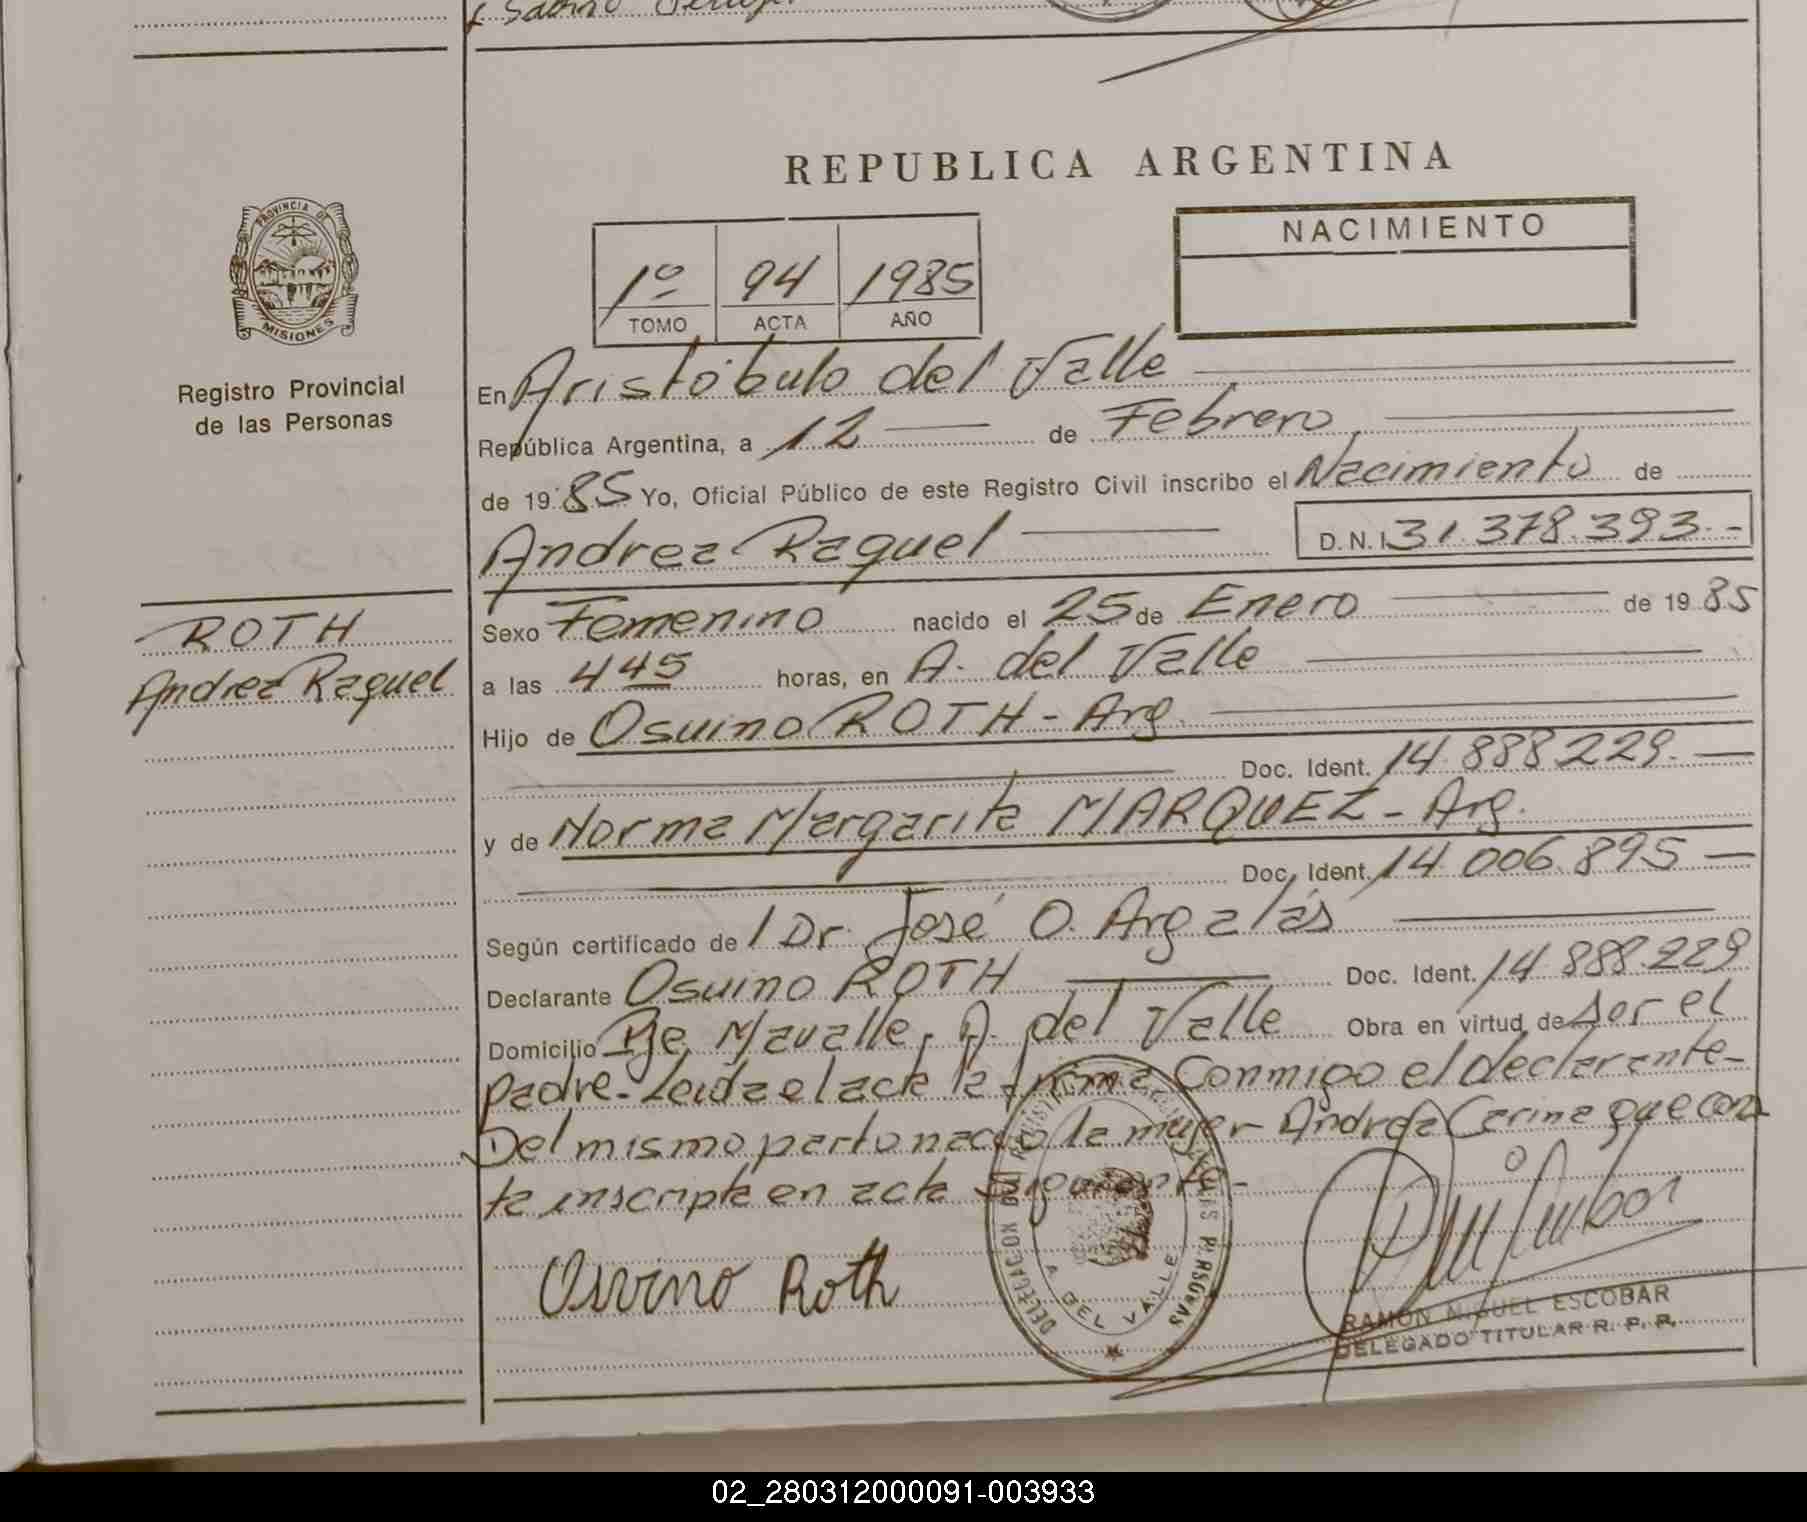 Sabino
REPUBLICA ARGENTINA
PROVINCIA DE
MISIONES
Registro Provincial
de las Personas
1º 94 1985
TOMO ACTA AÑO
NACIMIENTO
En Aristóbulo del Valle
República Argentina, a 12 de Febrero
de 1985 Yo, Oficial Público de este Registro Civil inscribo el Nacimiento de
Andrea Raquel D.N.I 31.378.393.-
ROTH
Andrea Raquel
Sexo Femenino nacido el 25 de Enero de 1985
a las 4 45 horas, en A. del Valle
Hijo de Osuino ROTH - Arg.
Doc. Ident. 14.888.229.-
y de Norma Margarita MARQUEZ - Arg.
Doc. Ident. 14.006.895 -
Según certificado de l Dr. José O. Argalás
Declarante Osuino ROTH Doc. Ident. 14.888.229
Domicilio Pje Mavalle, A. del Valle Obra en virtud de ser el
padre. Leida el acta la firma Conmigo el declarante-
Del mismo parto nació la mujer Andrea Carina que cons
ta inscripta en acta siguiente-
Osvino Roth
DELEGACION DEL REGISTRO DE LAS PERSONAS
A. DEL VALLE
RAMON MIGUEL ESCOBAR
DELEGADO TITULAR R. P. P.
02_280312000091-003933